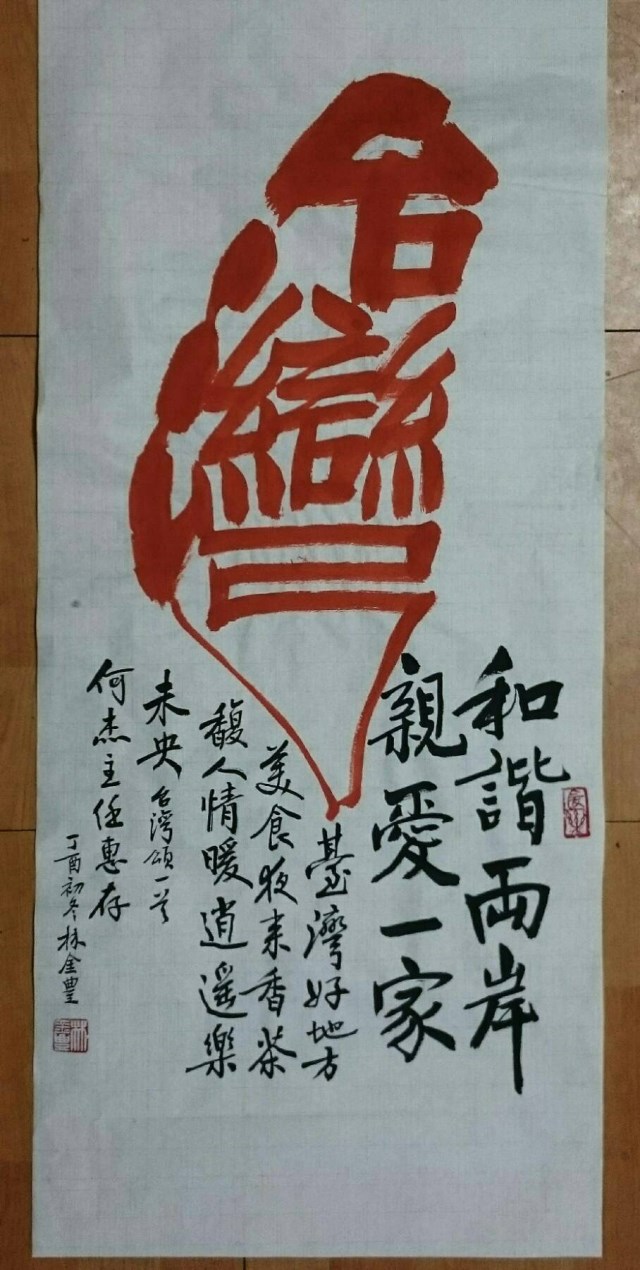 台灣
和諧兩岸
親愛一家
臺灣好地方
美食夜来香茶
馥人情暖逍遥樂
未央 台湾頌一首
何杰主任惠存
丁酉初冬 林金豊